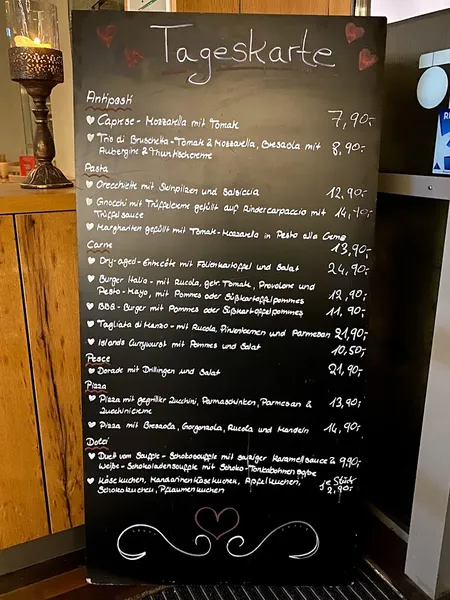 Tageskarte
Antipasti
Caprese - Mozzarella mit Tomate 7,90,-
Trio di Bruschetta - Tomate & Mozzarella, Bresaola mit 8,90,-
Aubergine & Thunfischcreme
Pasta
Orecchiette mit Steinpilzen und Salsiccia 12,90,-
Gnocchi mit Trüffelcreme gefüllt auf Rindercarpaccio mit 14,90,-
Trüffelsauce
Margheriten gefüllt mit Tomate-Mozzarella in Pesto alla Crema
13,90,-
Carne
Dry-aged-Entrecôte mit Folienkartoffel und Salat 24,90,-
Burger Italio - mit Rucola, getr. Tomate, Provolone und
Pesto-Mayo, mit Pommes oder Süßkartoffelpommes 12,90,-
BBQ-Burger mit Pommes oder Süßkartoffelpommes 11,90,-
Tagliata di Manzo - mit Rucola, Pinienkernen und Parmesan 21,90,-
Islands Currywurst mit Pommes und Salat 10,50,-
Pesce
Dorade mit Drillingen und Salat 21,90,-
Pizza
Pizza mit gegrillter Zucchini, Parmaschinken, Parmesan & 13,90,-
Zucchinicreme
Pizza mit Bresaola, Gorgonzola, Rucola und Mandeln 14,90,-
Dolci
Duett vom Souffle - Schokosouffle mit salziger Karamellsauce & 9,90,-
Weiße-Schokoladensouffle mit Schoko-Tonkabohnen
Käsekuchen, Mandarinenkäsekuchen, Apfelkuchen, je Stück
Schokokuchen, Pflaumenkuchen 2,90,-